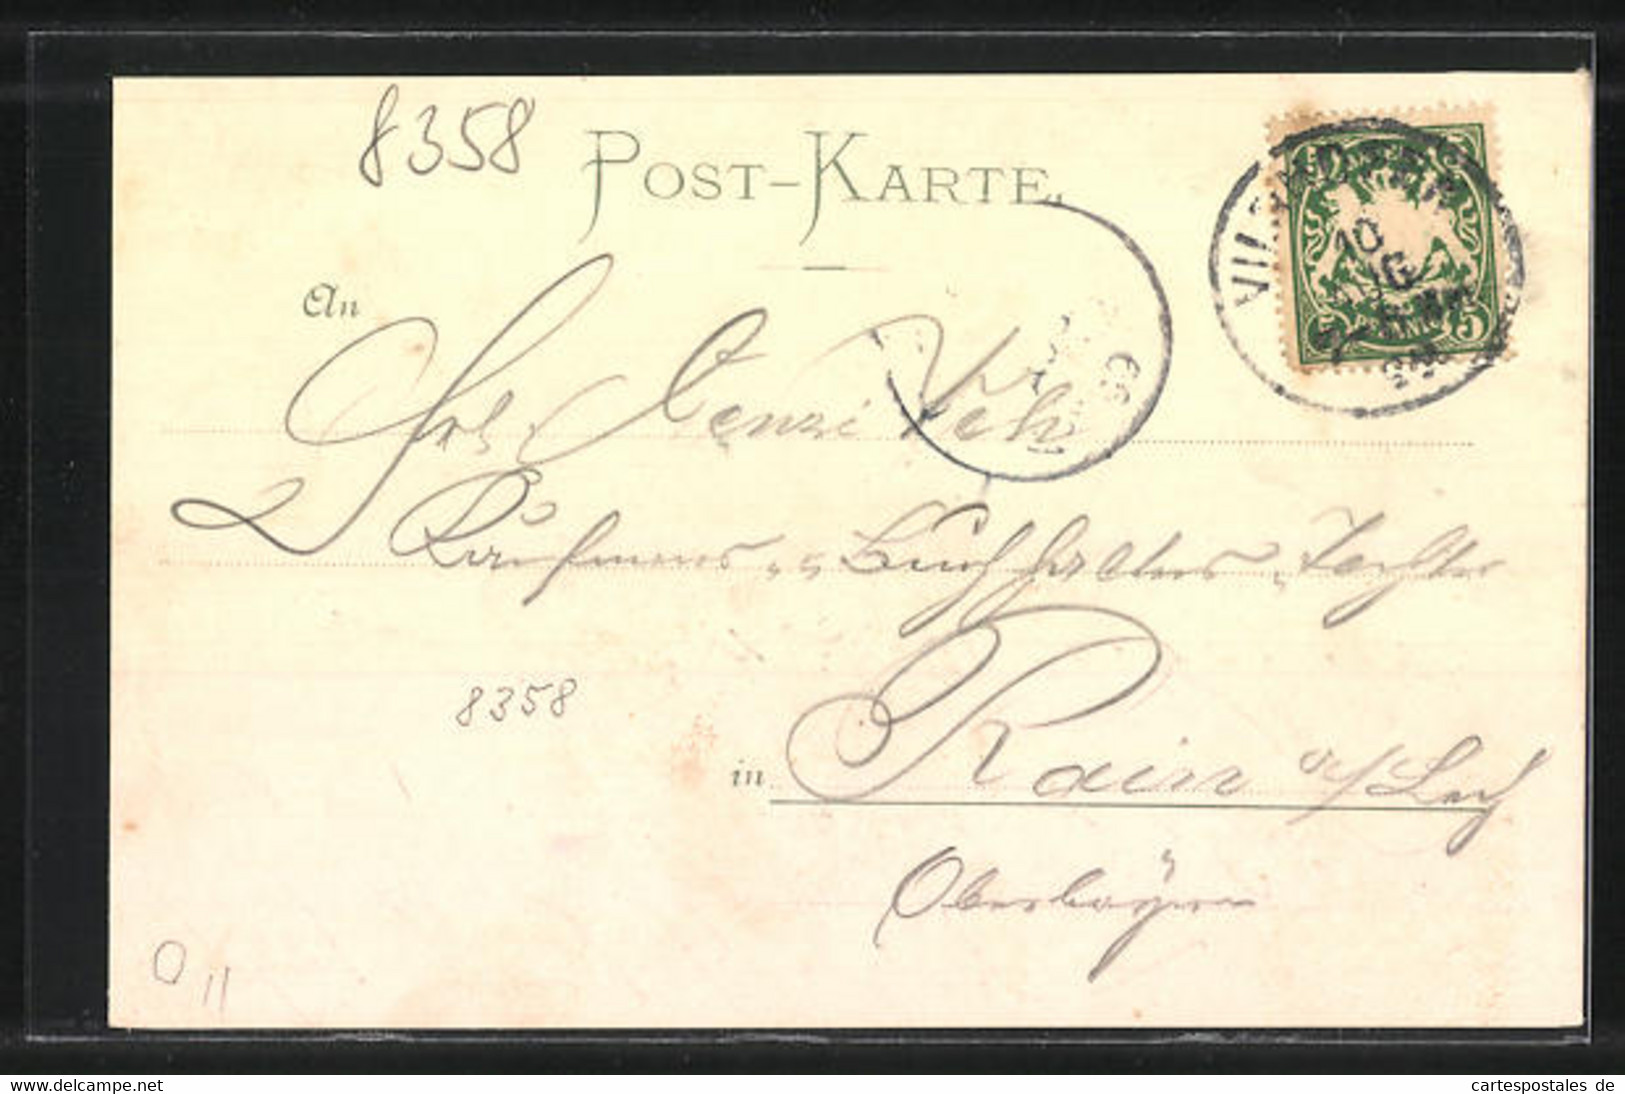 8358
POST-KARTE.
An
Frl. Cenzi Veh
Kaufmanns u. Buchhalters Tochter
8358
in Rain a/Lech
Oberbayern
PFENNIG 5
10
oldthing
cartespostales de